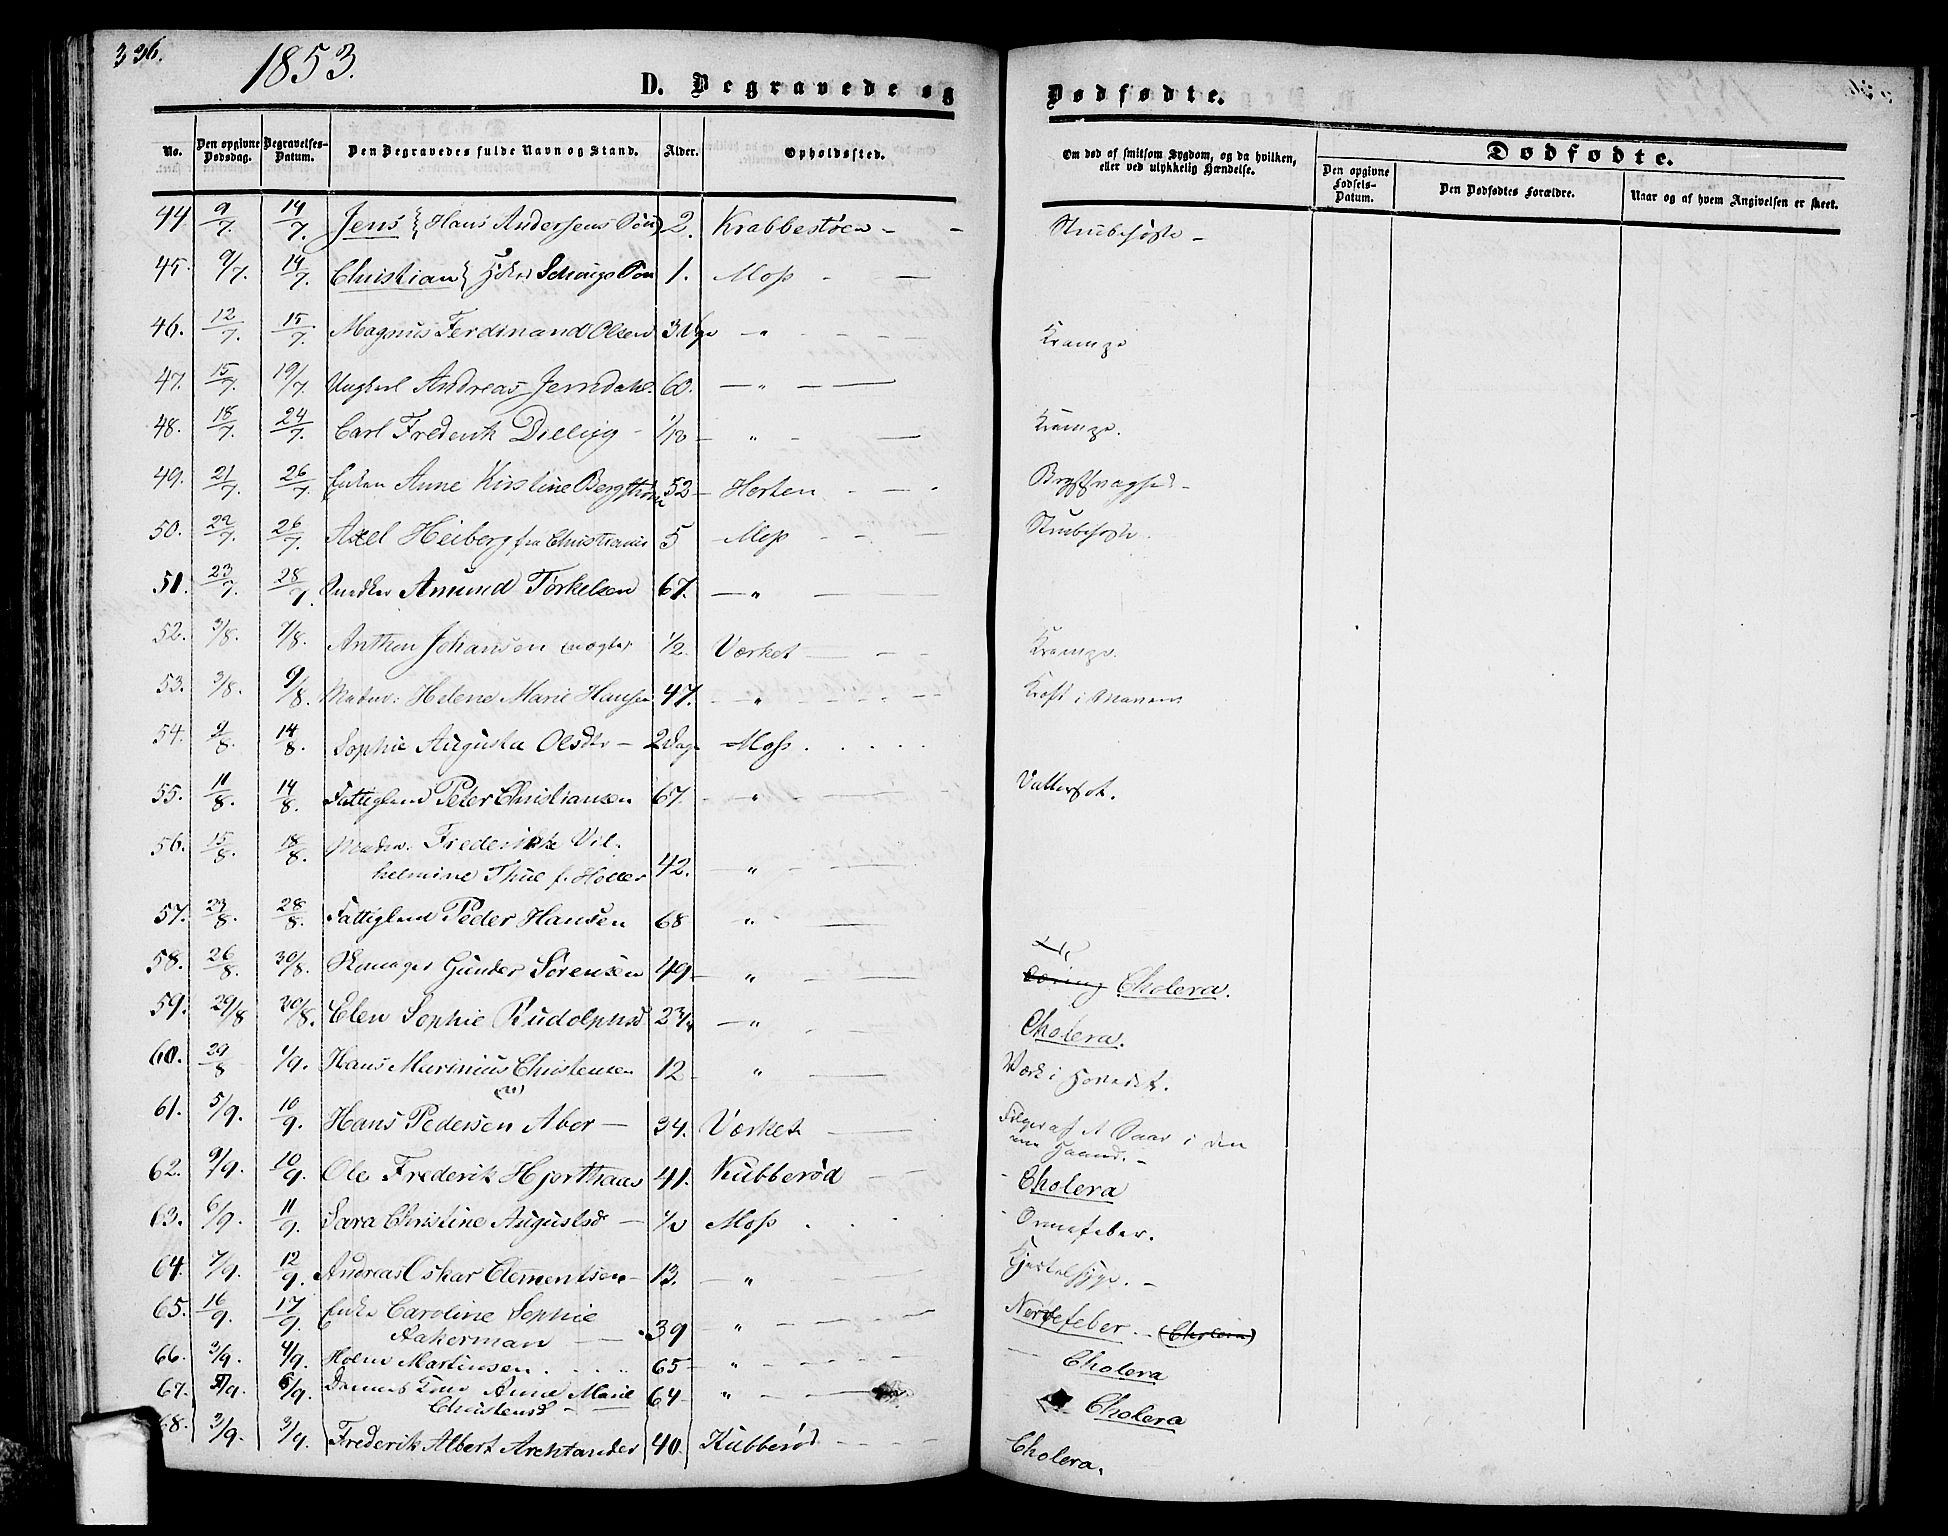 336.
1853.
D. Begravede og Dødfødte.
No. Den opgivne Dødsdag. Begravelses-Datum. Den Begravedes fulde Navn og Stand. Alder. Opholdssted. Om død af smitsom Sygdom, og da hvilken, eller ved ulykkelig Hændelse. Dødfødte.
Den opgivne Fødsels-Datum. Den Dødfødtes Forældre. Naar og af hvem Angivelsen er skeet.
44 9/7 14/7. Jens Hans Andersens Søn 2. Krabbestøen - Strubehoste -
45. 9/7. 14/7. Christian Søn 1. Moss -
46. 12/7. 15/7. Magnus Ferdinand Olsen 3 Uge - " - Krampe
47. 15/7. 19/7 Ungkarl Andreas Jerndahl 60. - " -
48. 18/7. 24/7. Carl Frederik - 1/12 - " - Krampe.
49. 21/7 26/7. Enken Anne Kirstine 52 - Horten - Brystsvaghed -
50. 22/7. 26/7. Axel Heiberg fra Christiania 5 - Moss - Strubehoste.
51. 23/7. 28/7. Snedker Amund Torkelsen 67. - " -
52. 3/8. 7/8. Anthon Johansen 1/2. Værket - Krampe.
53. 3/8. 9/8. Madm: Helene Marie Hansen 47. - " - Kræft i Maven
54. 9/8. 14/8. Sophie Augusta Olsdtr - 2 Dage Moss.
55. 11/8. 14/8. Fattiglem Peter Christiansen 67. - " - Vattersot.
56. 15/8. 18/8. Madm. Frederikke Vil-
helmine Thue f. Høller 42. "
57. 23/8. 28/8. Fattiglem Peder Hansen 68 "
58. 26/8. 30/8. Skomager Gunder Sørensen 49 - " Cholera.
59. 29/8 30/8. Elen Sophie Rudolphsd 2 3/4 - " Cholera.
60. 29/8 1/9. Hans Marinius Christensen 12 - " Værk i Hovedet.
61. 5/9. 10/9. Hans Pedersen Aber - 34. Værket - Følger af et Saar i den
ene Haand. -
62. 9/9. 10/9. Ole Frederik Hjorthaas 41. Kubberød - Cholera
63. 6/9. 11/9. Sara Christine Augustsd - 1/2 Moss - Ormefeber.
64. 7/9. 12/9. Andreas Oskar Clementsen - 13. - " Kjertelsyge. -
65. 16/9. 17/9. Enke Caroline Sophie
Aakerman - 39 - " - Nervefeber. (Cholera)
66. 3/9. 4/9. Holm Martinsen. 65 - " - Cholera
67. 5/9. 6/9. Anne Marie
Christensd - 64 - " - Cholera
68. 3/9. 3/9. Frederik Albert Arentander 40. Kubberød - Cholera.